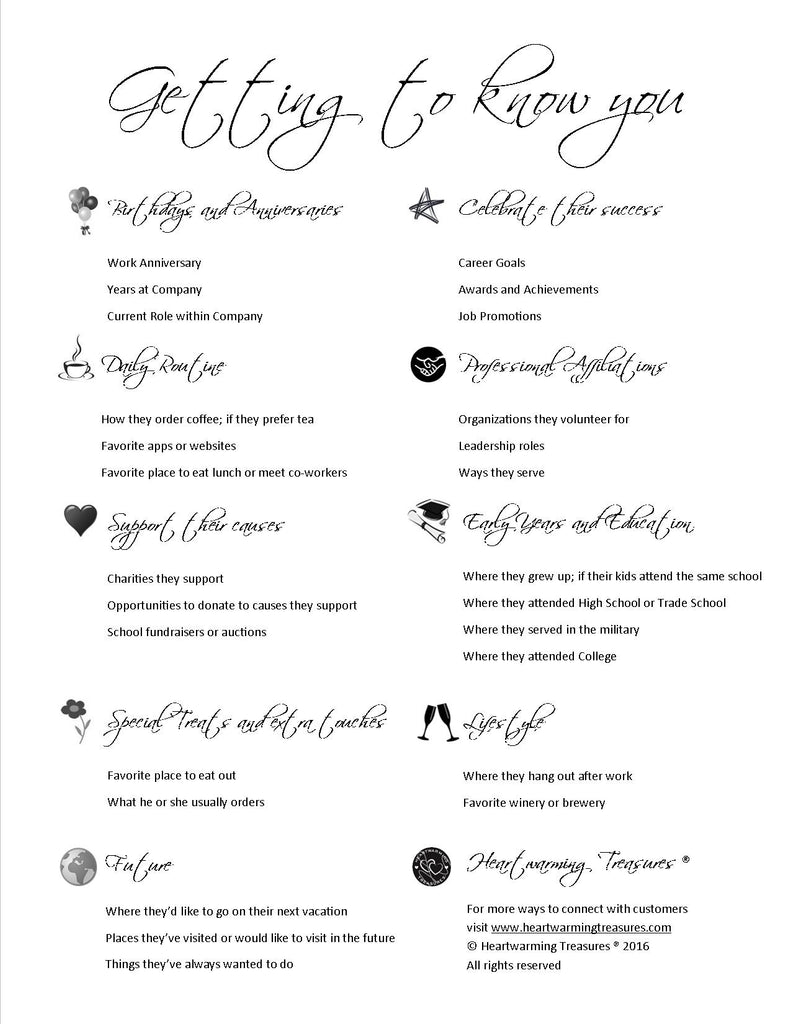 Getting to know you
Birthdays and Anniversaries
Work Anniversary
Years at Company
Current Role within Company
Celebrate their success
Career Goals
Awards and Achievements
Job Promotions
Daily Routine
How they order coffee; if they prefer tea
Favorite apps or websites
Favorite place to eat lunch or meet co-workers
Professional Affiliations
Organizations they volunteer for
Leadership roles
Ways they serve
Support their causes
Charities they support
Opportunities to donate to causes they support
School fundraisers or auctions
Early Years and Education
Where they grew up; if their kids attend the same school
Where they attended High School or Trade School
Where they served in the military
Where they attended College
Special Treats and extra touches
Favorite place to eat out
What he or she usually orders
Lifestyle
Where they hang out after work
Favorite winery or brewery
Future
Where they’d like to go on their next vacation
Places they’ve visited or would like to visit in the future
Things they’ve always wanted to do
HEARTWARMING
TREASURES
Heartwarming Treasures ®
For more ways to connect with customers
visit www.heartwarmingtreasures.com
© Heartwarming Treasures ® 2016
All rights reserved